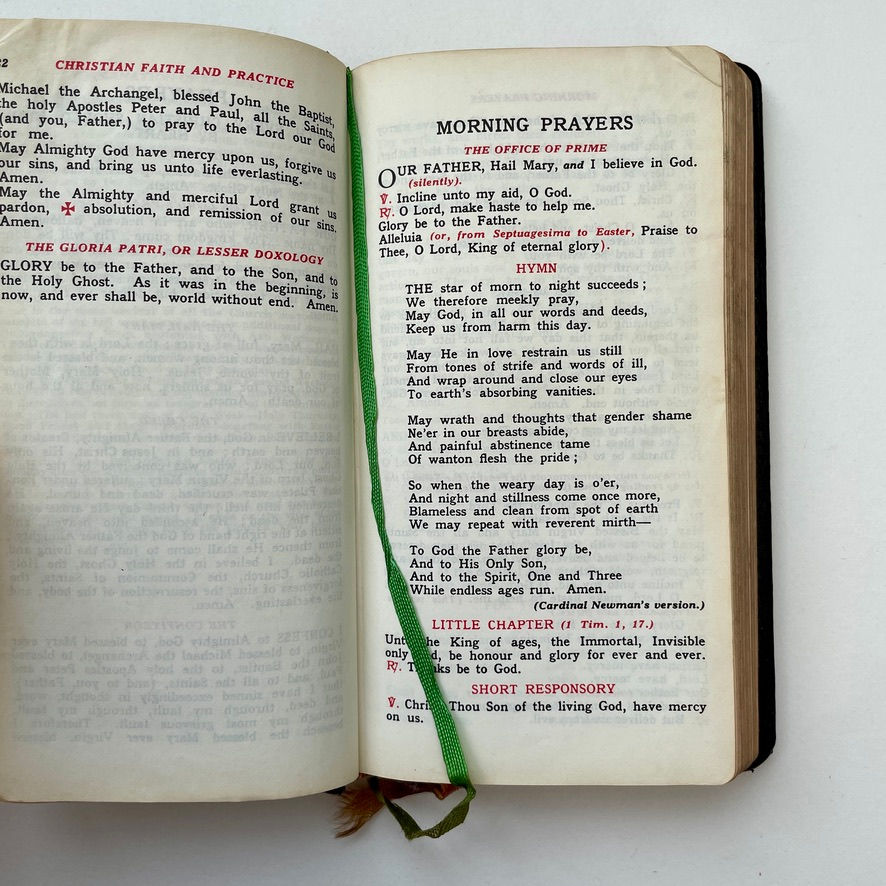 22
CHRISTIAN FAITH AND PRACTICE
Michael the Archangel, blessed John the Baptist,
the holy Apostles Peter and Paul, all the Saints,
(and you, Father,) to pray to the Lord our God
for me.
May Almighty God have mercy upon us, forgive us
our sins, and bring us unto life everlasting.
Amen.
May the Almighty and merciful Lord grant us
pardon, ✠ absolution, and remission of our sins.
Amen.
THE GLORIA PATRI, OR LESSER DOXOLOGY
GLORY be to the Father, and to the Son, and to
the Holy Ghost. As it was in the beginning, is
now, and ever shall be, world without end. Amen.
MORNING PRAYERS
THE OFFICE OF PRIME
OUR FATHER, Hail Mary, and I believe in God.
(silently).
℣. Incline unto my aid, O God.
℟. O Lord, make haste to help me.
Glory be to the Father.
Alleluia (or, from Septuagesima to Easter, Praise to
Thee, O Lord, King of eternal glory).
HYMN
THE star of morn to night succeeds ;
We therefore meekly pray,
May God, in all our words and deeds,
Keep us from harm this day.
May He in love restrain us still
From tones of strife and words of ill,
And wrap around and close our eyes
To earth's absorbing vanities.
May wrath and thoughts that gender shame
Ne'er in our breasts abide,
And painful abstinence tame
Of wanton flesh the pride ;
So when the weary day is o'er,
And night and stillness come once more,
Blameless and clean from spot of earth
We may repeat with reverent mirth—
To God the Father glory be,
And to His Only Son,
And to the Spirit, One and Three
While endless ages run. Amen.
(Cardinal Newman's version.)
LITTLE CHAPTER (1 Tim. 1, 17.)
Unto the King of ages, the Immortal, Invisible
only God, be honour and glory for ever and ever.
℟. Thanks be to God.
SHORT RESPONSORY
℣. Christ Thou Son of the living God, have mercy
on us.